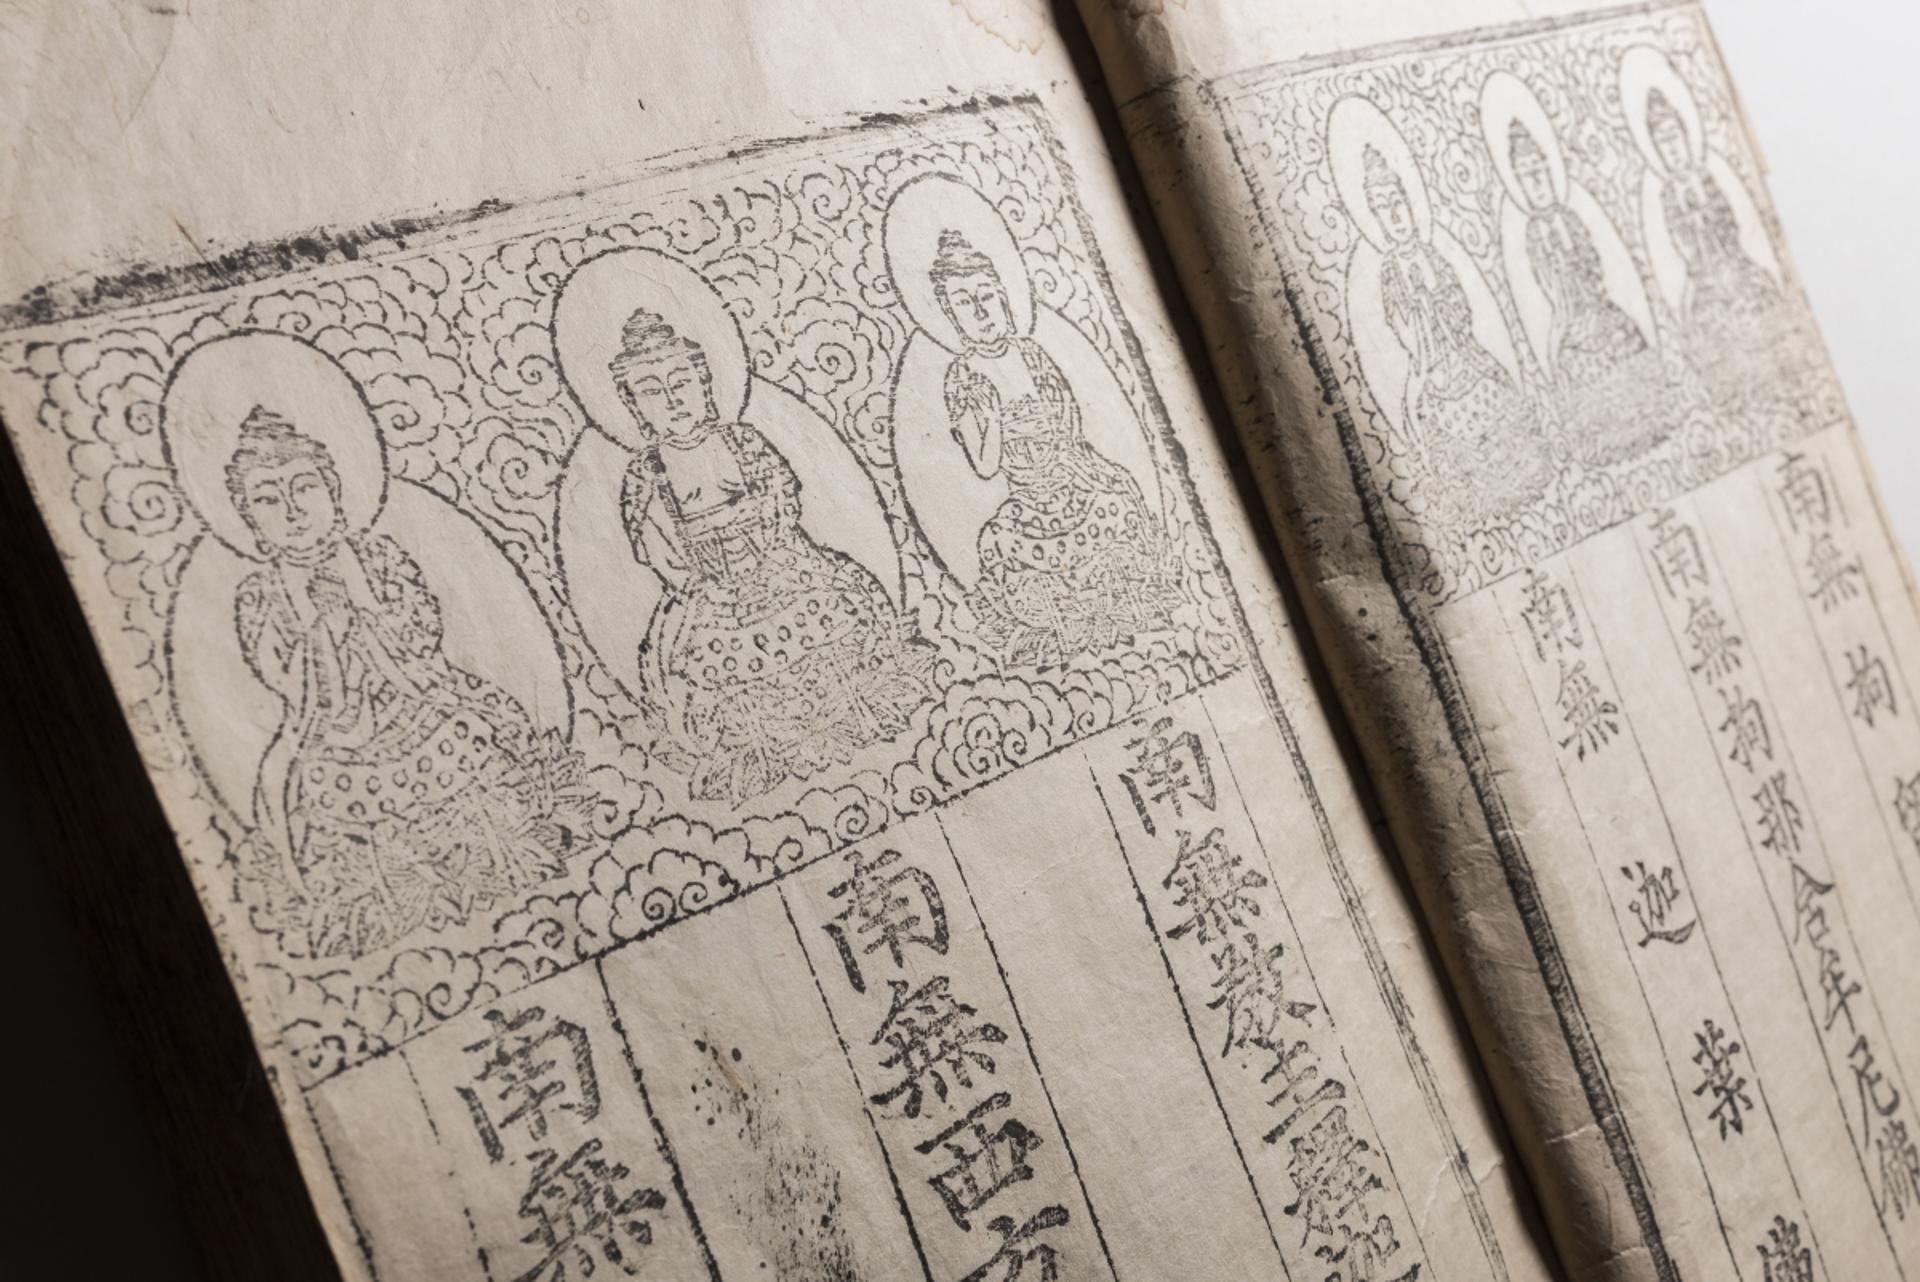 南無拘
南無拘那含牟尼佛
南無迦葉佛
南無敎主釋迦
南無西方
南無